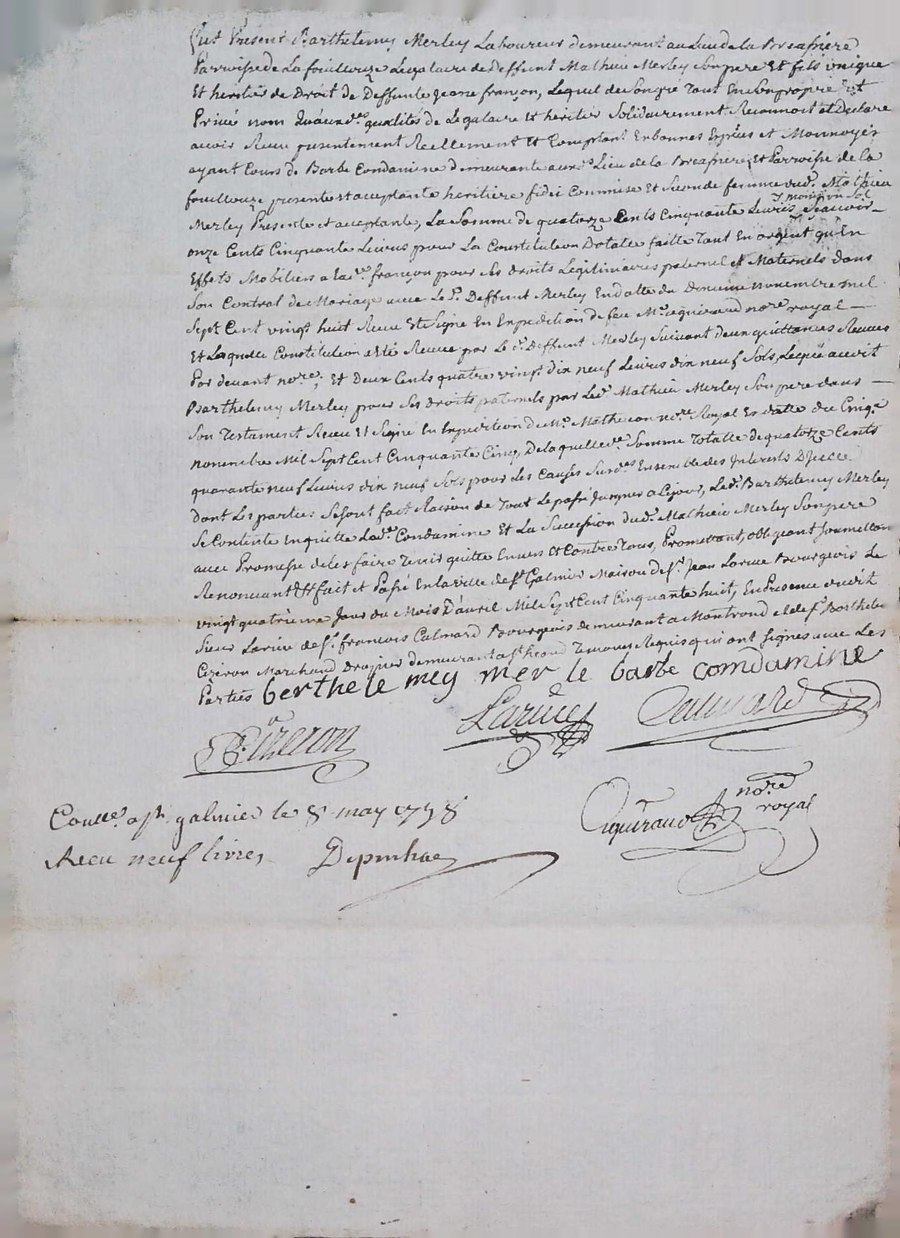 fut Present Barthelemy Merley Laboureur demeurant au Lieu de la
Parroisse de La fouillouze Legataire de Deffunt Mathieu Merley Son pere Et fils unique
Et heritier de Droit de Deffunte Jeane françon, Lequel de Son gré Tant En Son propre Et
Privé nom qualités de Legataire Et heritier Solidairement Reconnoit et Declare
avoir Receu presentement Reellement Et Comptant En bonnes Espèces et Monnoyes
ayant Cours de Barbe Condamine demeurante audt. Lieu de la Et Parroisse de la
fouillouze presente et acceptante heritiere fidei Commise Et Seconde femme dud. Mathieu
Merley Presente et acceptante, La Somme de quatorze Cents Cinquante Livres moins un Sol Sçavoir
onze Cents Cinquante Livres pour La Constitution Dotalle faitte Tant En argent qu'En
Effets Mobiliers a lad. françon pour Ses droits Legitimaires paternel et Maternels dans
Son Contrat de Mariage avec Le Sr. Deffunt Merley En datte du Novembre mil
Sept Cent vingt huit Receu Et Signé En Expedition de feu Me. Ciquirand nore. royal
Et Laquelle Constitution a Eté Receue par Le d. Deffunt Merley Suivant deux quittances Receues
Par devant nore. Et Deux Cents quatre vingt dix neuf Livres dix neuf Sols, Legué audit
Barthelemy Merley pour Ses Droits paternels par Led. Mathieu Merley Son pere dans
Son Testament Receu Et Signé En Expedition de Me. Mathevon nore. Royal En datte du Cinqe.
novembre Mil Sept Cent Cinquante Cinq, De laquelle de. Somme Totalle de quatorze Cents
quarante neuf Livres dix neuf Sols pour Les Causes Susdes. Ensemble des Interets D'Icelle
dont Les parties Se Sont fait Raison de Tout Le passé Jusques a Ce jour, Led. Barthelemy Merley
Se Contente En quitte Lad. Condamine Et La Succession dud. Mathieu Merley Son pere
avec Promesse de Les faire Tenir quitte Envers Et Contre Tous, Promettant, obligeant Soumettant
Renonçant &ce fait et Passé En la ville de St. Galmier Maison de Sr. Jean Larive Bourgeois Le
vingt quatrieme Jour du Mois D'avril Mil Sept Cent Cinquante huit, En Presence dudit
Sieur Larive de Sr. francois Calmard Bourgeois demeurant a Montrond et de Sr. Barthelemy
Cizeron Marchand Drapier demeurant a St. heand Temoins Requis qui ont Signés avec Les
Parties berthe le mey mer le barbe comdamine
B. Cizeron Larive Calmard
Conlle. a St. galmier le 8 may 1758
Receu neuf livres Depinhac
Ciquirand nore. royal